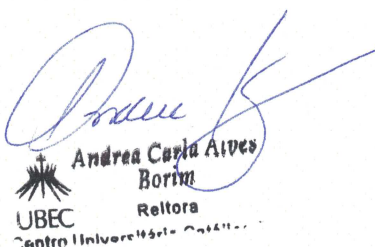 Andrea Carla Alves
Borim
Reitora
UBEC
Centro Universitário